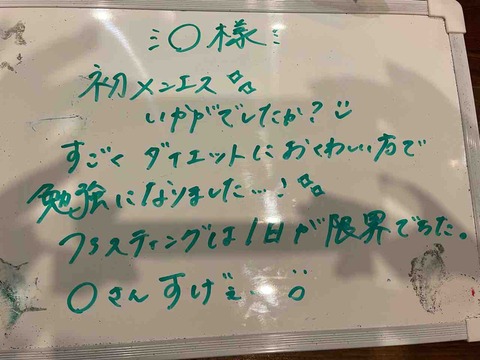 ○様
初メンエス
いかがでしたか?
すごくダイエットにおくわしい方で
勉強になりました…!
ファスティングは1日が限界でちた。
○さんすげぇ…